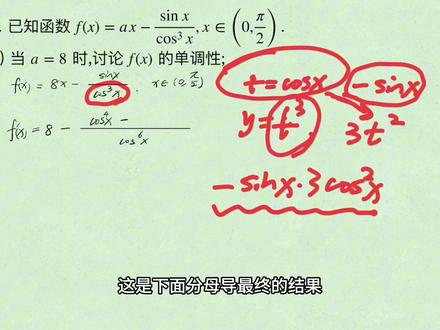 . 已知函数 f(x) = ax − \frac{sin x}{cos³ x}, x ∈ (0, \frac{π}{2}) .
) 当 a = 8 时,讨论 f(x) 的单调性;
f(x) = 8x − \frac{sinx}{cos³x} . x∈(0,\frac{π}{2})
f'(x) = 8 − \frac{cos⁴x −}{cos⁶x}
t=cosx − sinx
y=t³. 3t²
− sinx·3cos²x
这是下面分母导最终的结果